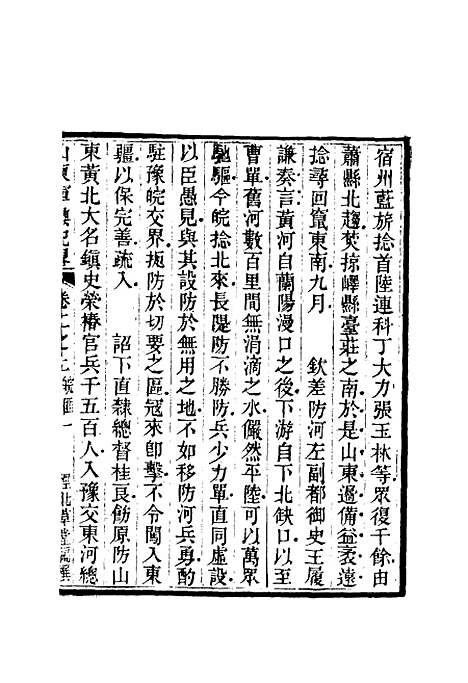 宿州藍旂捻首陸連科丁大力張玉林等眾復千餘由
蕭縣北趨焚掠嶧縣臺莊之南於是山東過備益袤遠
捻尋回竄東南九月　欽差防河左副都御史王履
謙奏言黃河自蘭陽漫口之後下游自下北缺口以至
曹單舊河數百里間無涓滴之水儼然平陸可以萬眾
馳驅今皖捻北來長隄防不勝防兵少力單直同虛設
以臣愚見與其設防於無用之地不如移防河兵勇酌
駐豫皖交界扼防於切要之區寇來卽擊不令闖入東
疆以保完善疏入　詔下直隸總督桂良飭原防山
東黃北大名鎮史榮椿官兵千五百人入豫交東河總
山東軍興紀畧　卷二之二　　匪一